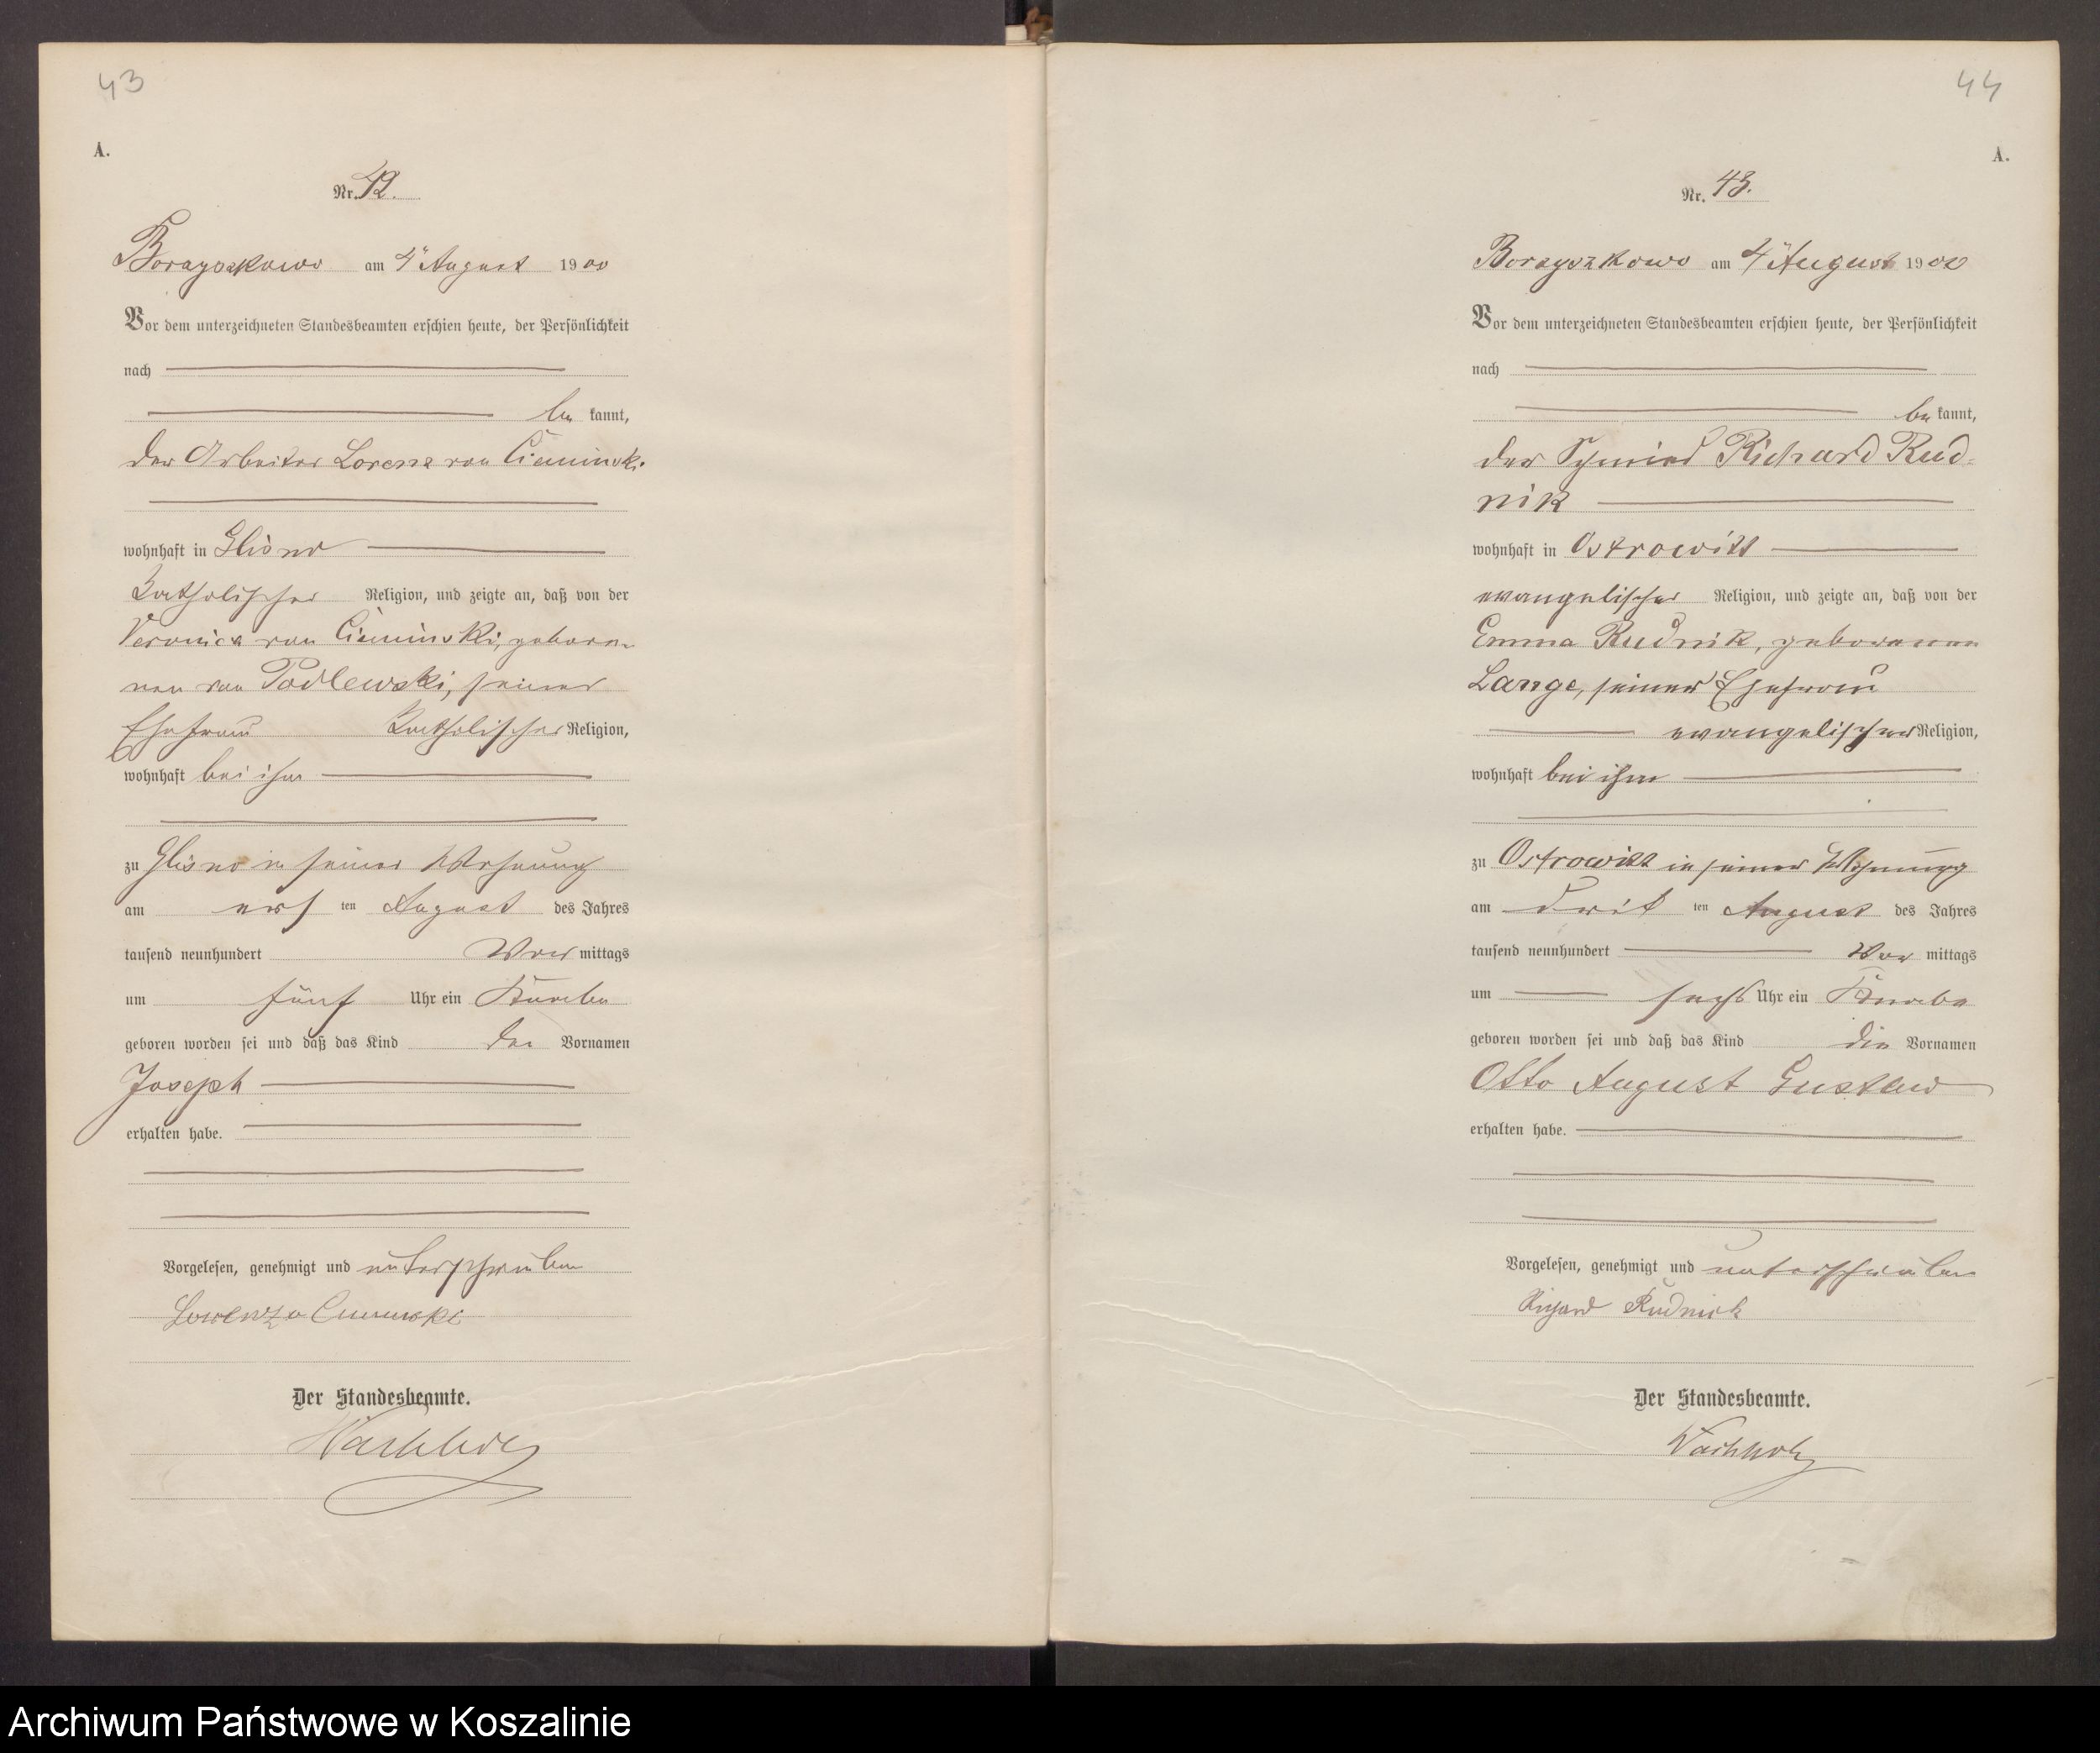 43
A.
Nr. 42.
Borzyszkowo am 4ten August 1900
Vor dem unterzeichneten Standesbeamten erschien heute, der Persönlichkeit
nach
be kannt,
der Arbeiter Lorenz von Cieminski
wohnhaft in Glisno
katholischer Religion, und zeigte an, daß von der
Veronica von Cieminski, gebore-
nen von Podlewski, seiner
Ehefrau katholischer Religion,
wohnhaft bei ihm
zu Glisno in seiner Wohnung
am ers ten August des Jahres
tausend neunhundert Vor mittags
um fünf Uhr ein Knabe
geboren worden sei und daß das Kind den Vornamen
Joseph
erhalten habe.
Vorgelesen, genehmigt und unterschrieben
Lorenz v Cieminski
Der Standesbeamte.
Wachholz
44
A.
Nr. 43.
Borzyszkowo am 4ten August 1900
Vor dem unterzeichneten Standesbeamten erschien heute, der Persönlichkeit
nach
be kannt,
der Schmied Richard Rud-
nik
wohnhaft in Ostrowitt
evangelischer Religion, und zeigte an, daß von der
Emma Rudnik, geborenen
Lange, seiner Ehefrau
evangelischer Religion,
wohnhaft bei ihm
zu Ostrowitt in seiner Wohnung
am drit ten August des Jahres
tausend neunhundert Vor mittags
um sechs Uhr ein Knabe
geboren worden sei und daß das Kind die Vornamen
Otto August Gustav
erhalten habe.
Vorgelesen, genehmigt und unterschrieben
Richard Rudnick
Der Standesbeamte.
Wachholz
Archiwum Państwowe w Koszalinie